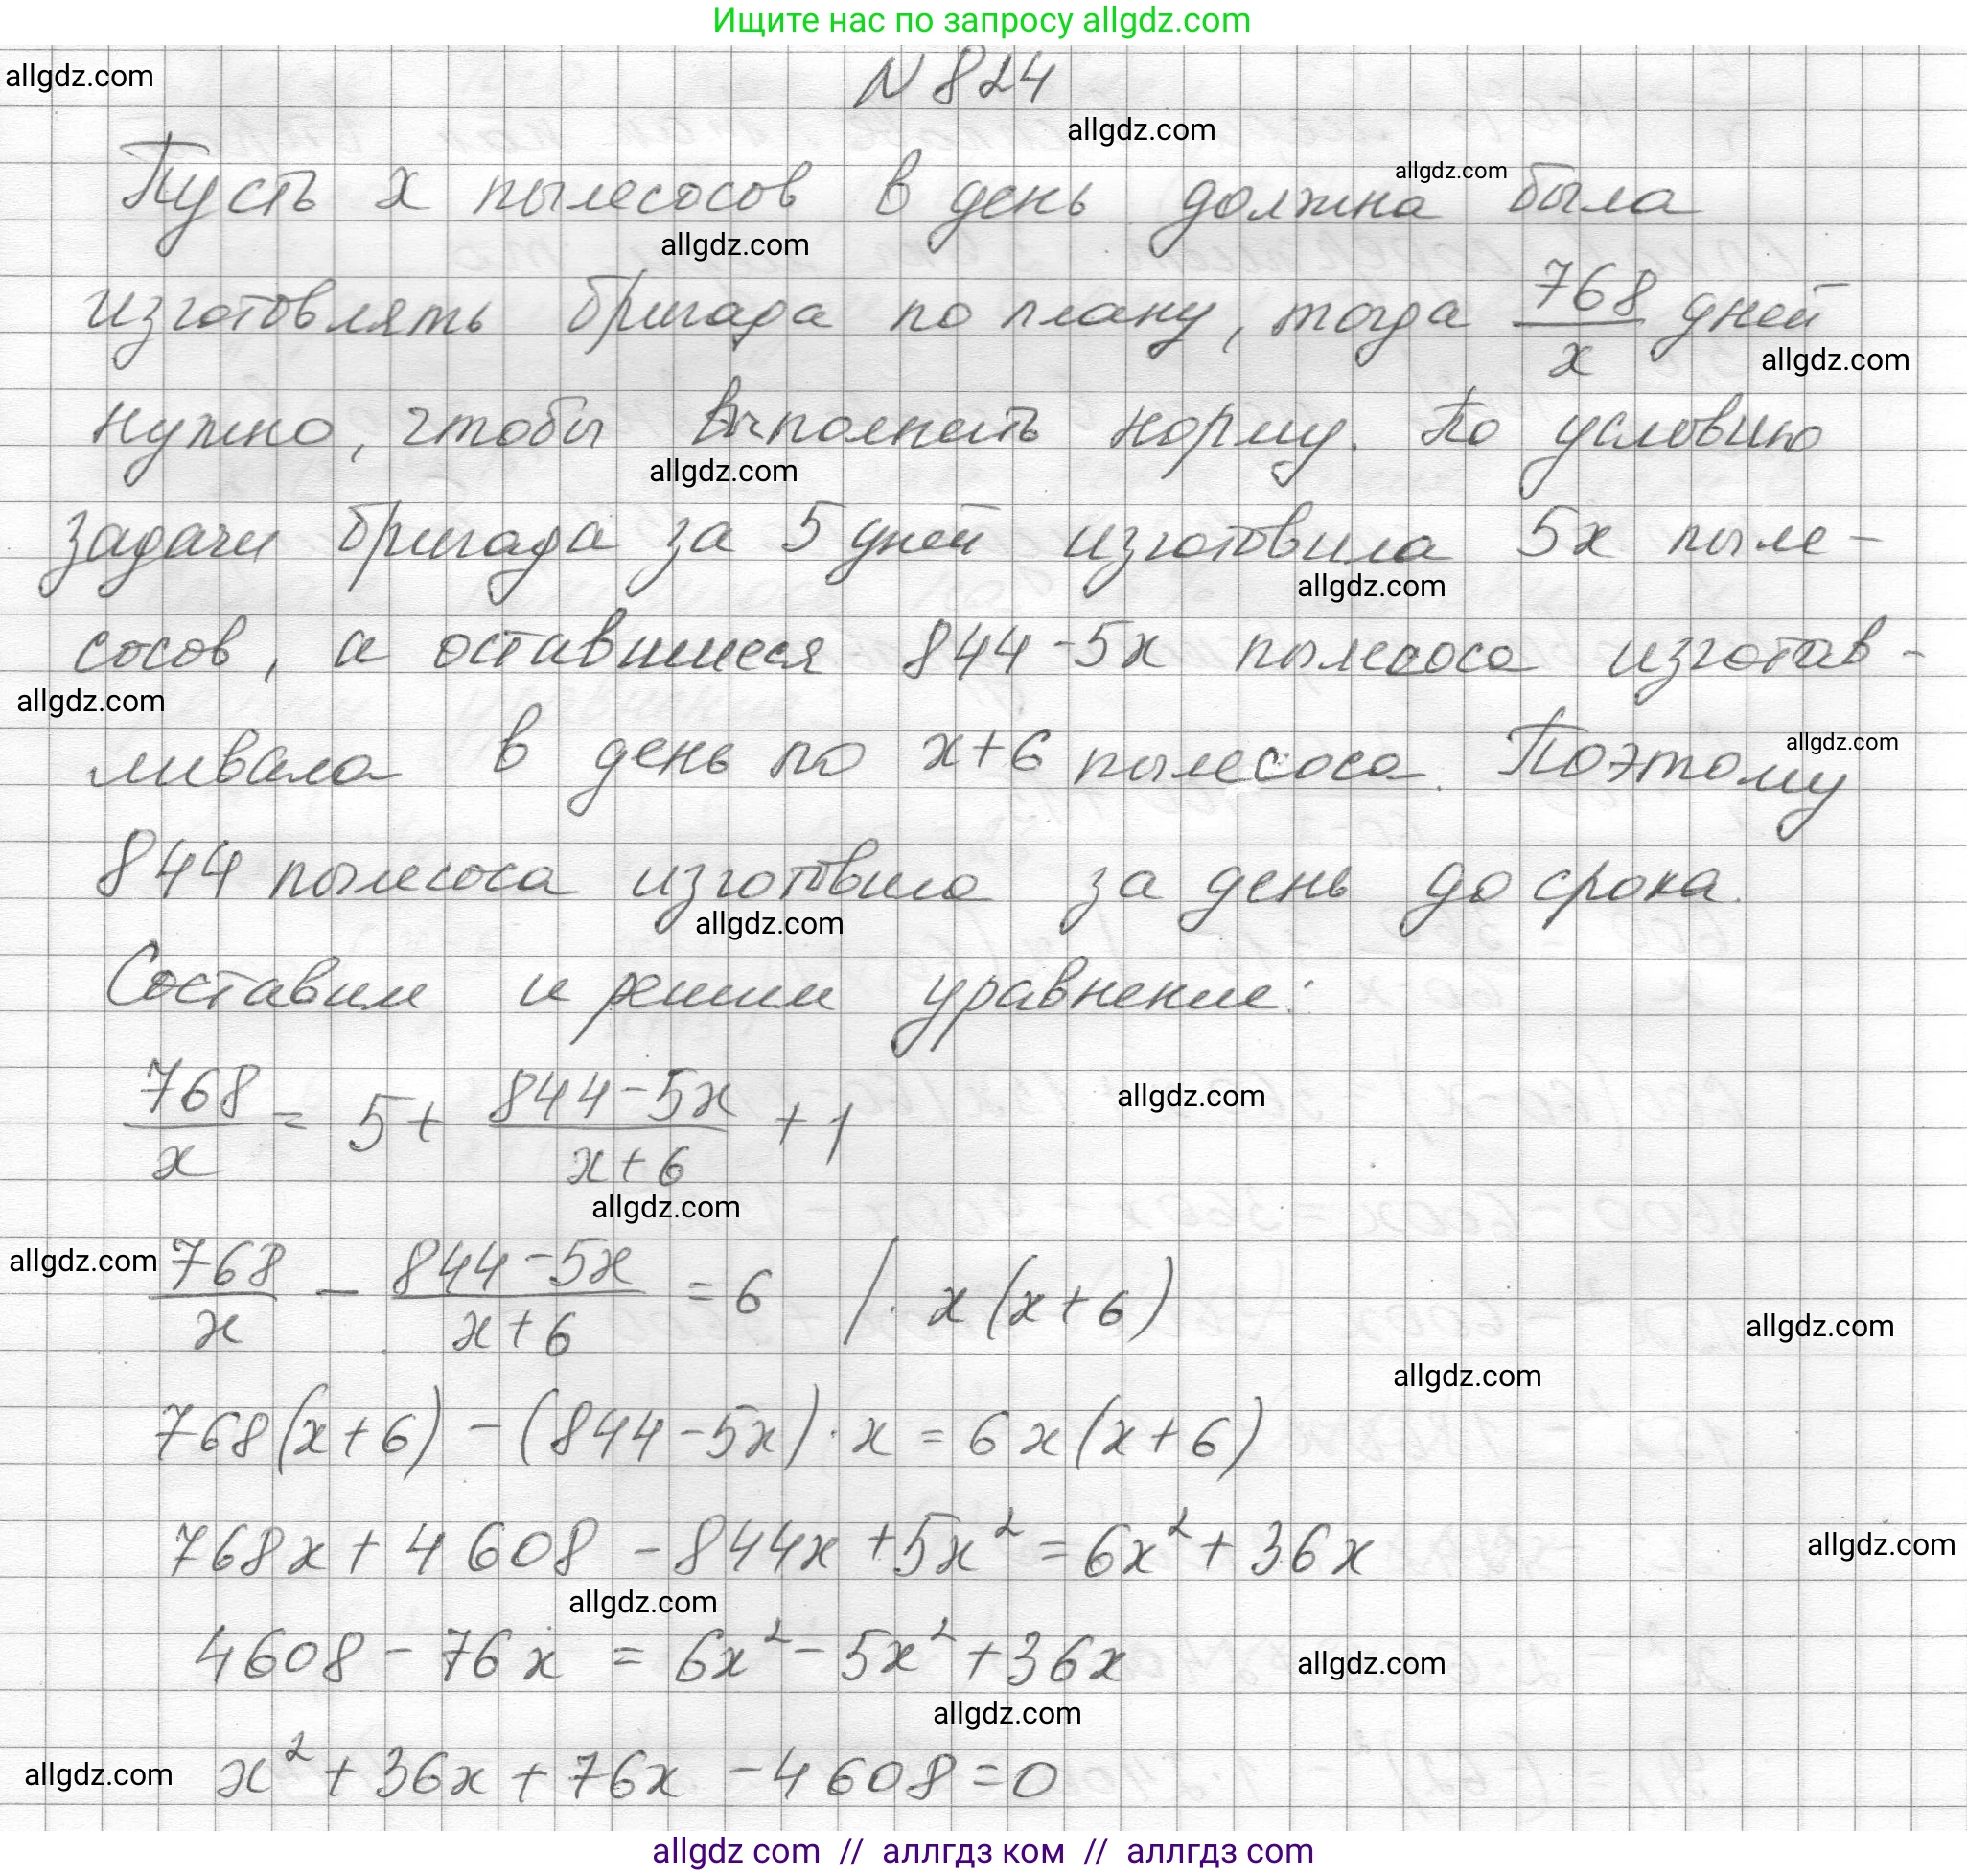 Ищите нас по запросу allgdz.com
N 824
allgdz.com
allgdz.com
allgdz.com
Пусть x пылесосов в день должна была
allgdz.com
изготовлять бригада по плану, тогда 768/x дней
allgdz.com
нужно, чтобы выполнить норму. По условию
allgdz.com
задачи бригада за 5 дней изготовила 5x пыле-
allgdz.com
сосов, а оставшиеся 844-5x пылесоса изготав-
allgdz.com
ливала в день по x+6 пылесоса. Поэтому
allgdz.com
844 пылесоса изготовила за день до срока.
allgdz.com
Составим и решим уравнение:
768/x = 5 + (844-5x)/(x+6) + 1
allgdz.com
allgdz.com
allgdz.com
768/x - (844-5x)/(x+6) = 6 / · x(x+6)
allgdz.com
allgdz.com
768(x+6) - (844-5x) · x = 6x(x+6)
768x + 4608 - 844x + 5x² = 6x² + 36x
allgdz.com
allgdz.com
4608 - 76x = 6x² - 5x² + 36x
allgdz.com
allgdz.com
allgdz.com
x² + 36x + 76x - 4608 = 0
allgdz com // аллгдз ком // аллгдз com